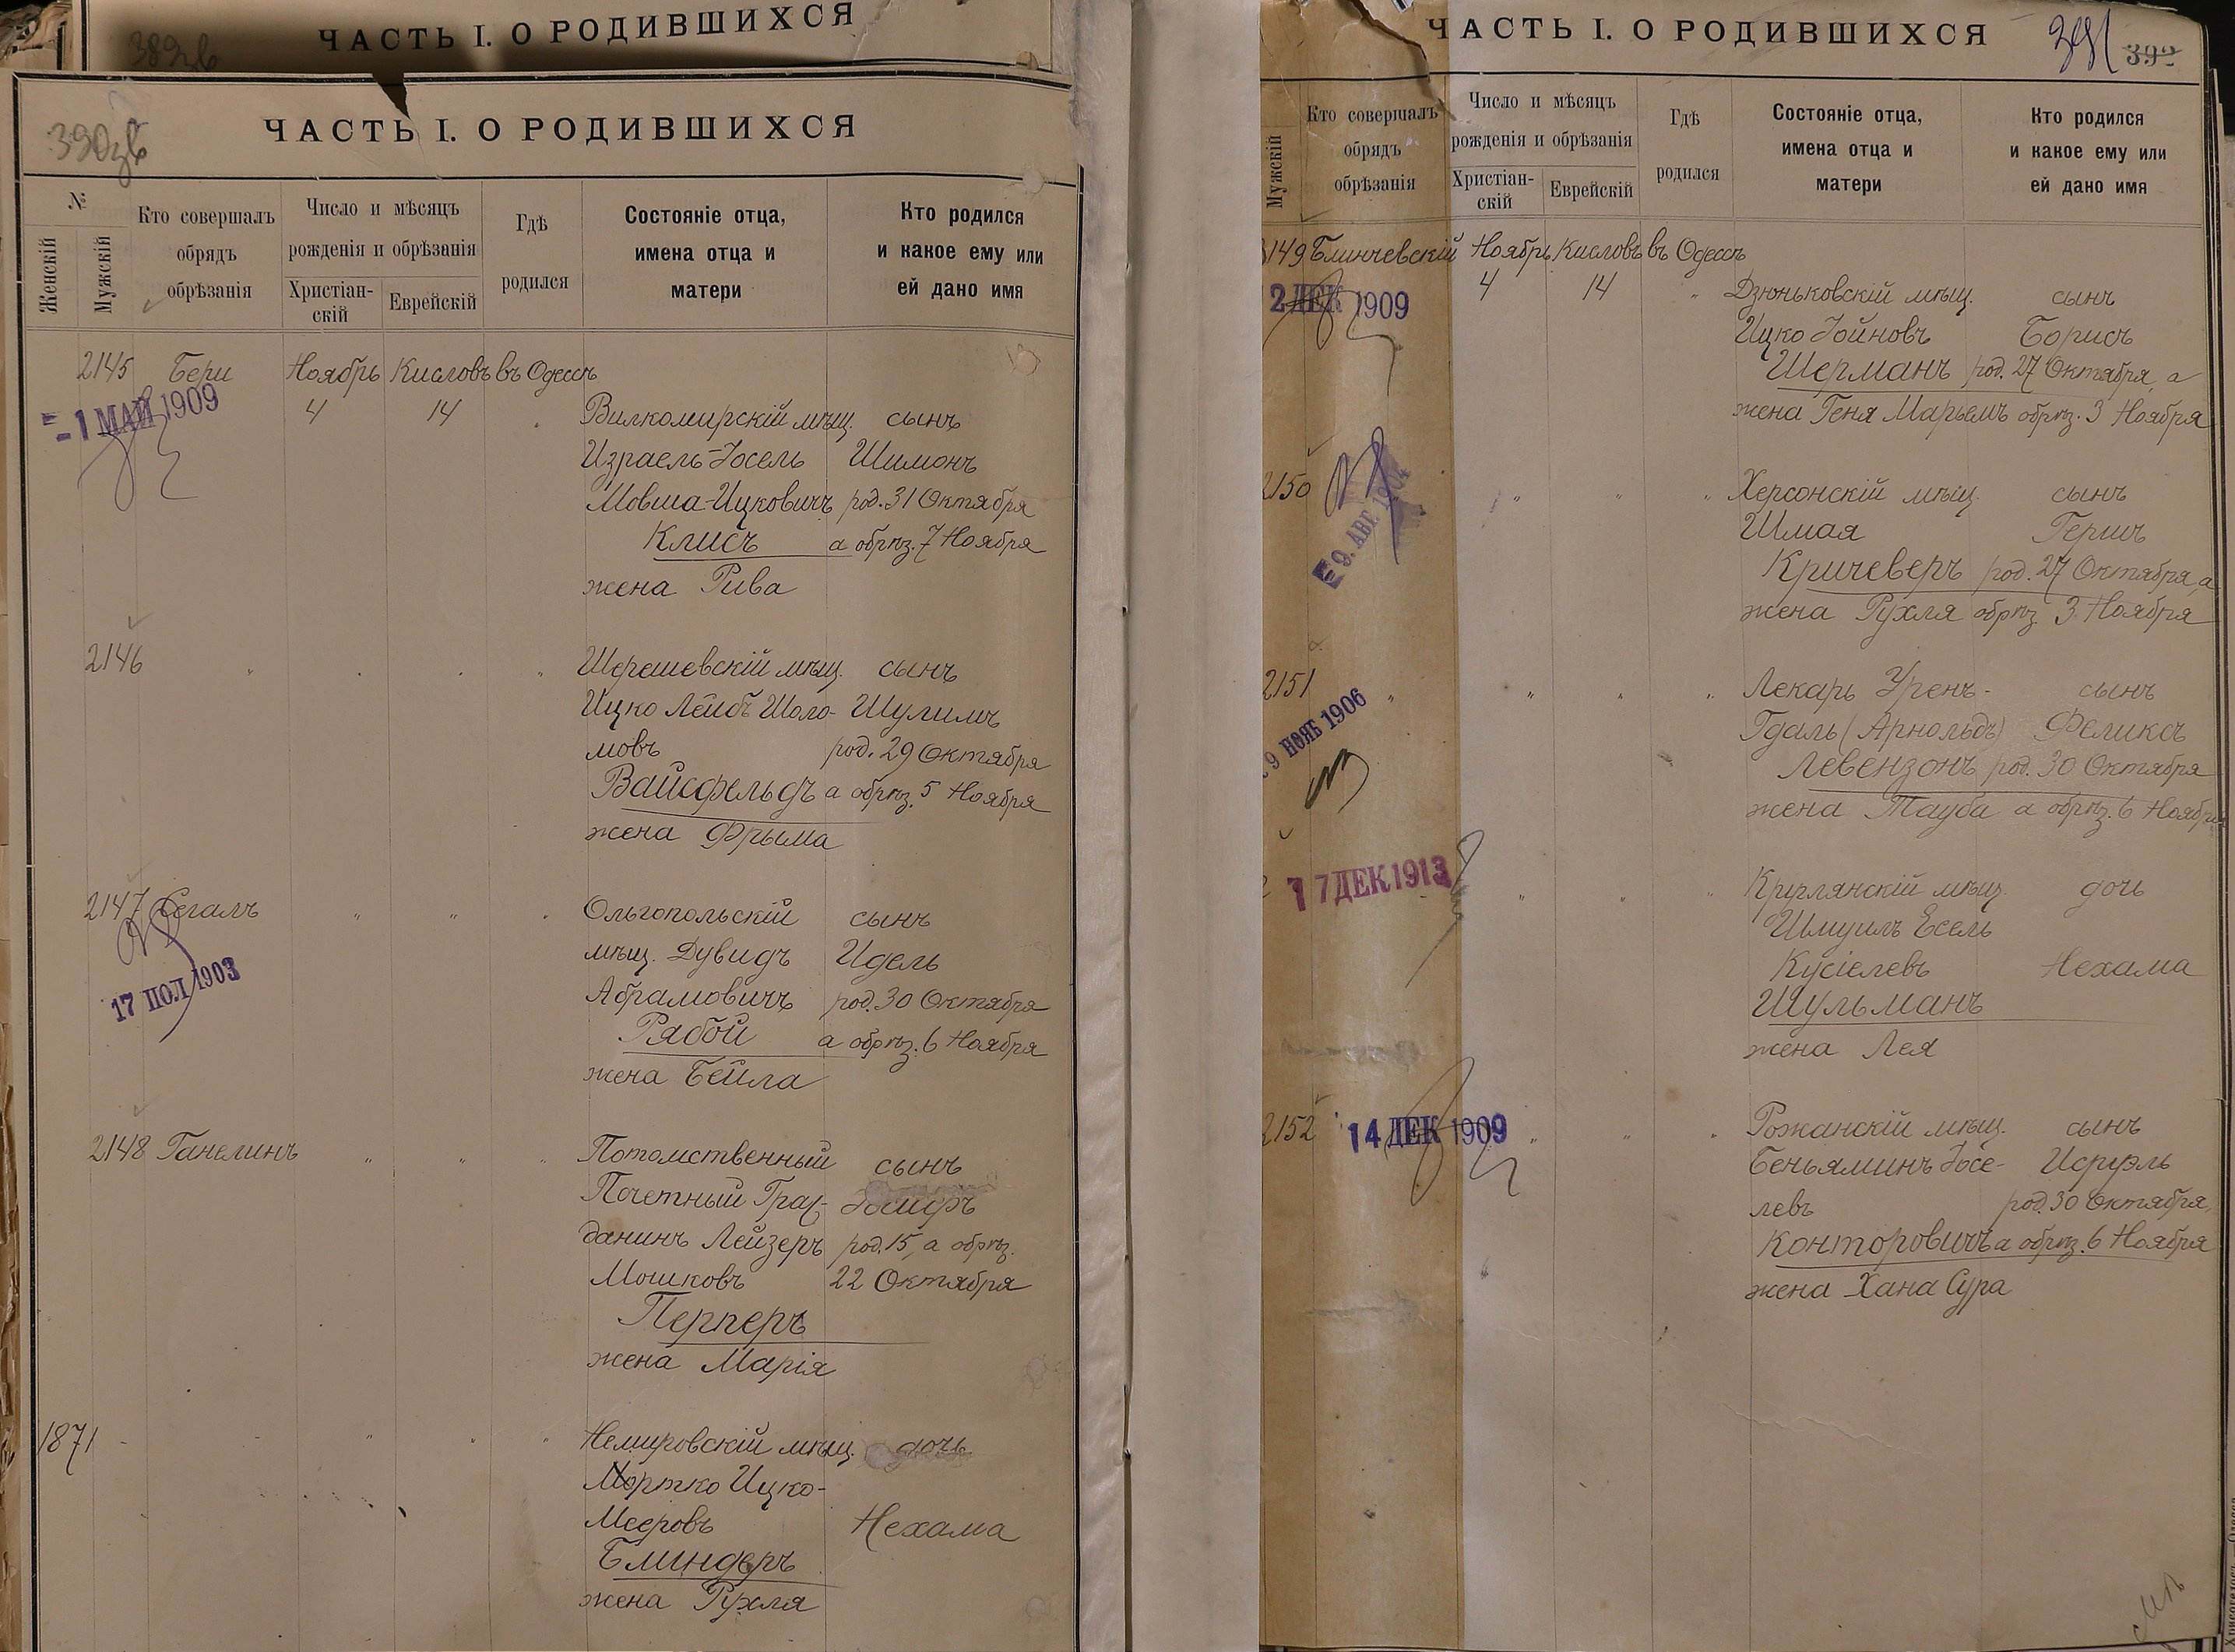 ЧАСТЬ I. О РОДИВШИХСЯ
ЧАСТЬ I. О РОДИВШИХСЯ
№
Женскій
Мужскій
Кто совершалъ
обрядъ
обрѣзанія
Число и мѣсяцъ
рожденія и обрѣзанія
Христіан-
скій
Еврейскій
Гдѣ
родился
Состояніе отца,
имена отца и
матери
Кто родился
и какое ему или
ей дано имя
2145 Бери Ноябрь Кисловъ въ Одессѣ
1 МАЙ 1909
4 14 Вилкомирскій мѣщ. сынъ
Израель-Іосель Шимонъ
Мовша-Ицковичъ род. 31 Октября
Клисъ а обрѣз. 7 Ноября
жена Рива
2146 " " " " Шерешевскій мѣщ. сынъ
Ицко Лейбъ Шоло- Шулимъ
мовъ род. 29 Октября
Вайсфельдъ а обрѣз. 5 Ноября
жена Фрыма
2147 Сегалъ " " " Ольгопольскій сынъ
мѣщ. Дувидъ Идель
17 1903
Абрамовичъ род. 30 Октября
Рябой а обрѣз. 6 Ноября
жена Бейла
2148 Ганелинъ " " " Потомственный сынъ
Почетный Граж- Іосифъ
данинъ Лейзеръ род. 15, а обрѣз.
Мошковъ 22 Октября
Перперъ
жена Марія
1871 - - " " " Немировскій мѣщ. дочь
Мортко Ицко-
Мееровъ Нехама
Блиндеръ
жена Рухля
ЧАСТЬ I. О РОДИВШИХСЯ
391
392
Мужскій
Кто совершалъ
обрядъ
обрѣзанія
Число и мѣсяцъ
рожденія и обрѣзанія
Христіан-
скій
Еврейскій
Гдѣ
родился
Состояніе отца,
имена отца и
матери
Кто родился
и какое ему или
ей дано имя
149 Блинчевскій Ноябрь Кисловъ въ Одессѣ
2 ДЕК 1909
4 14 " Дзюньковскій мѣщ. сынъ
Ицко Іойновъ Борисъ
Шерманъ род. 27 Октября, а
жена Геня Марьемъ обрѣз. 3 Ноября
2150 " " " Херсонскій мѣщ. сынъ
9. АВГ. 1904
Шмая Гершъ
Кричеверъ род. 27 Октября, а
жена Рухля обрѣз. 3 Ноября
2151 " " " " Лекарь Уренъ- сынъ
9 НОЯБ 1906
Гдаль (Арнольдъ) Феликсъ
Левензонъ род. 30 Октября
жена Тауба а обрѣз. 6 Ноября
7 ДЕК 1913
" " " мѣщ. дочь
Шмуилъ Есель
Кусіелевъ Нехама
Шульманъ
жена Лея
2152 14 ДЕК 1909 " " " Рожанскій мѣщ. сынъ
Беньяминъ Іосе- Исруэль
левъ род. 30 Октября,
Конторовичъ а обрѣз. 6 Ноября
жена Хана Сура